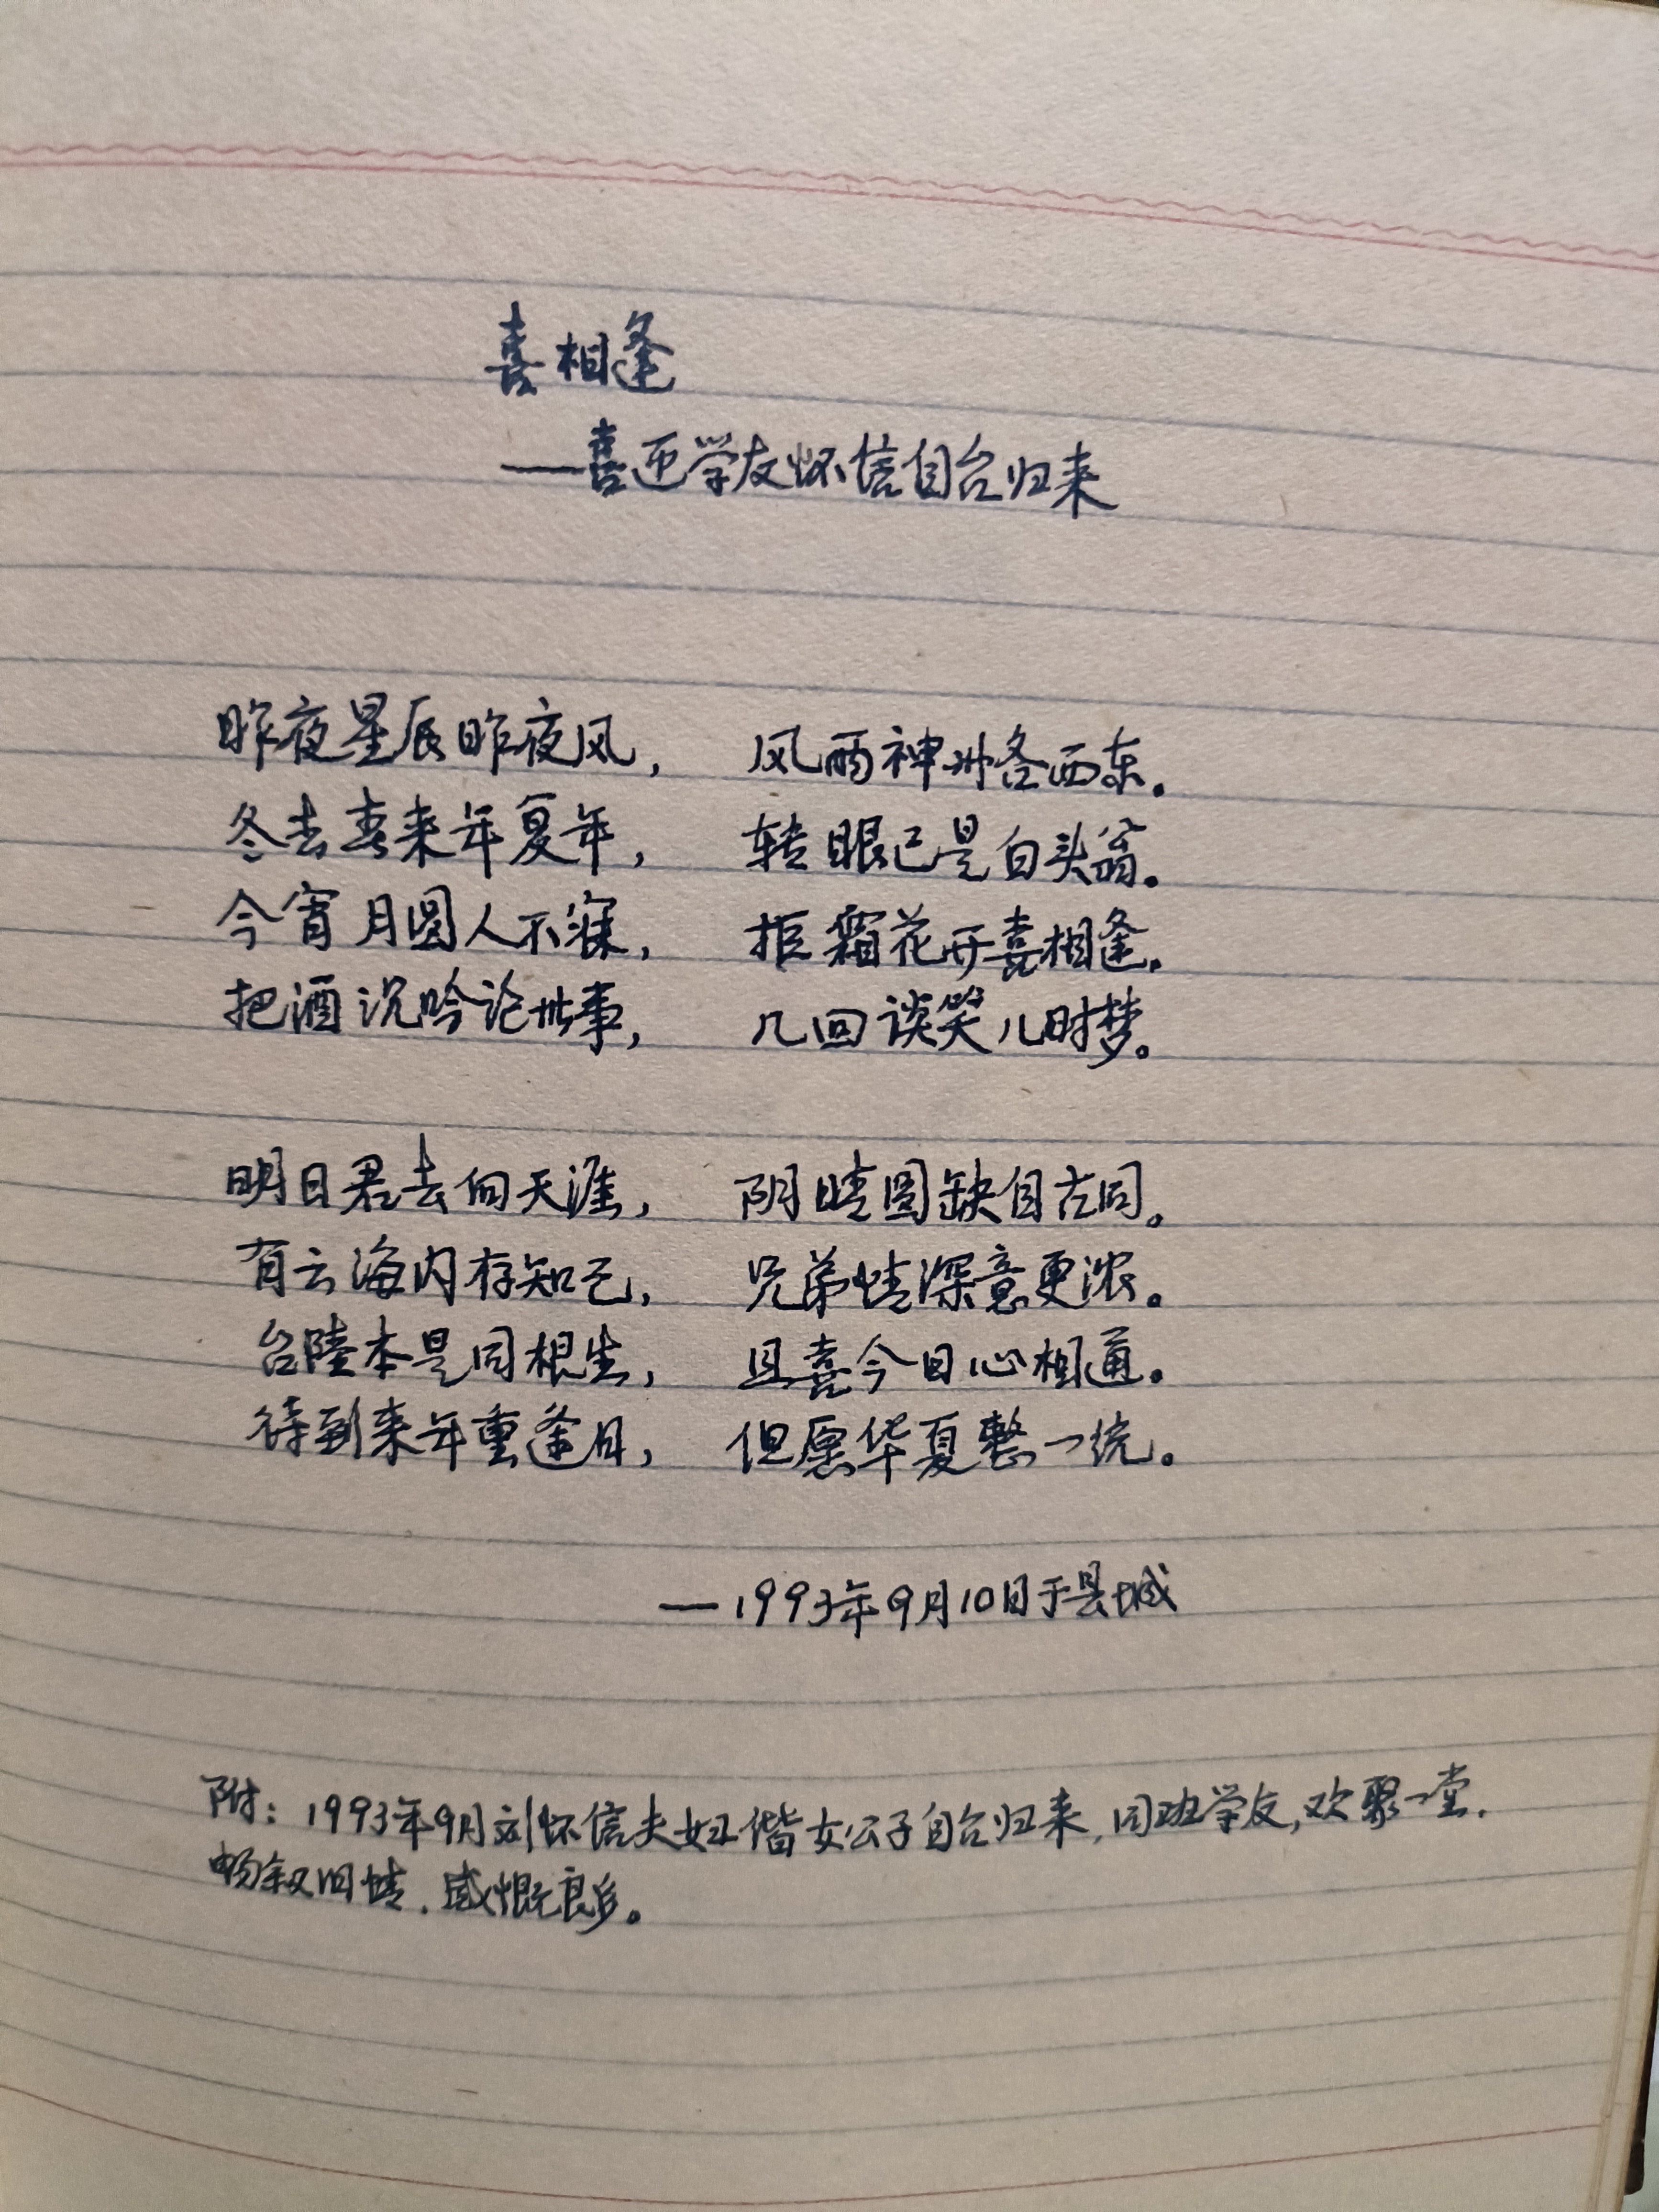 喜相逢
——喜迎学友怀信自台归来
昨夜星辰昨夜风， 风雨神州各西东。
冬去春来年复年， 转眼已是白头翁。
今宵月圆人不寐， 拒霜花开喜相逢。
把酒沉吟论世事， 几回谈笑儿时梦。
明日君去向天涯， 阴晴圆缺自古同。
有云海内存知己， 兄弟情深意更浓。
台陆本是同根生， 且喜今日心相通。
待到来年重逢日， 但愿华夏整一统。
—1993年9月10日于县城
附：1993年9月刘怀信夫妇偕女公子自台归来，同班学友，欢聚一堂．
畅叙旧情．感慨良多。